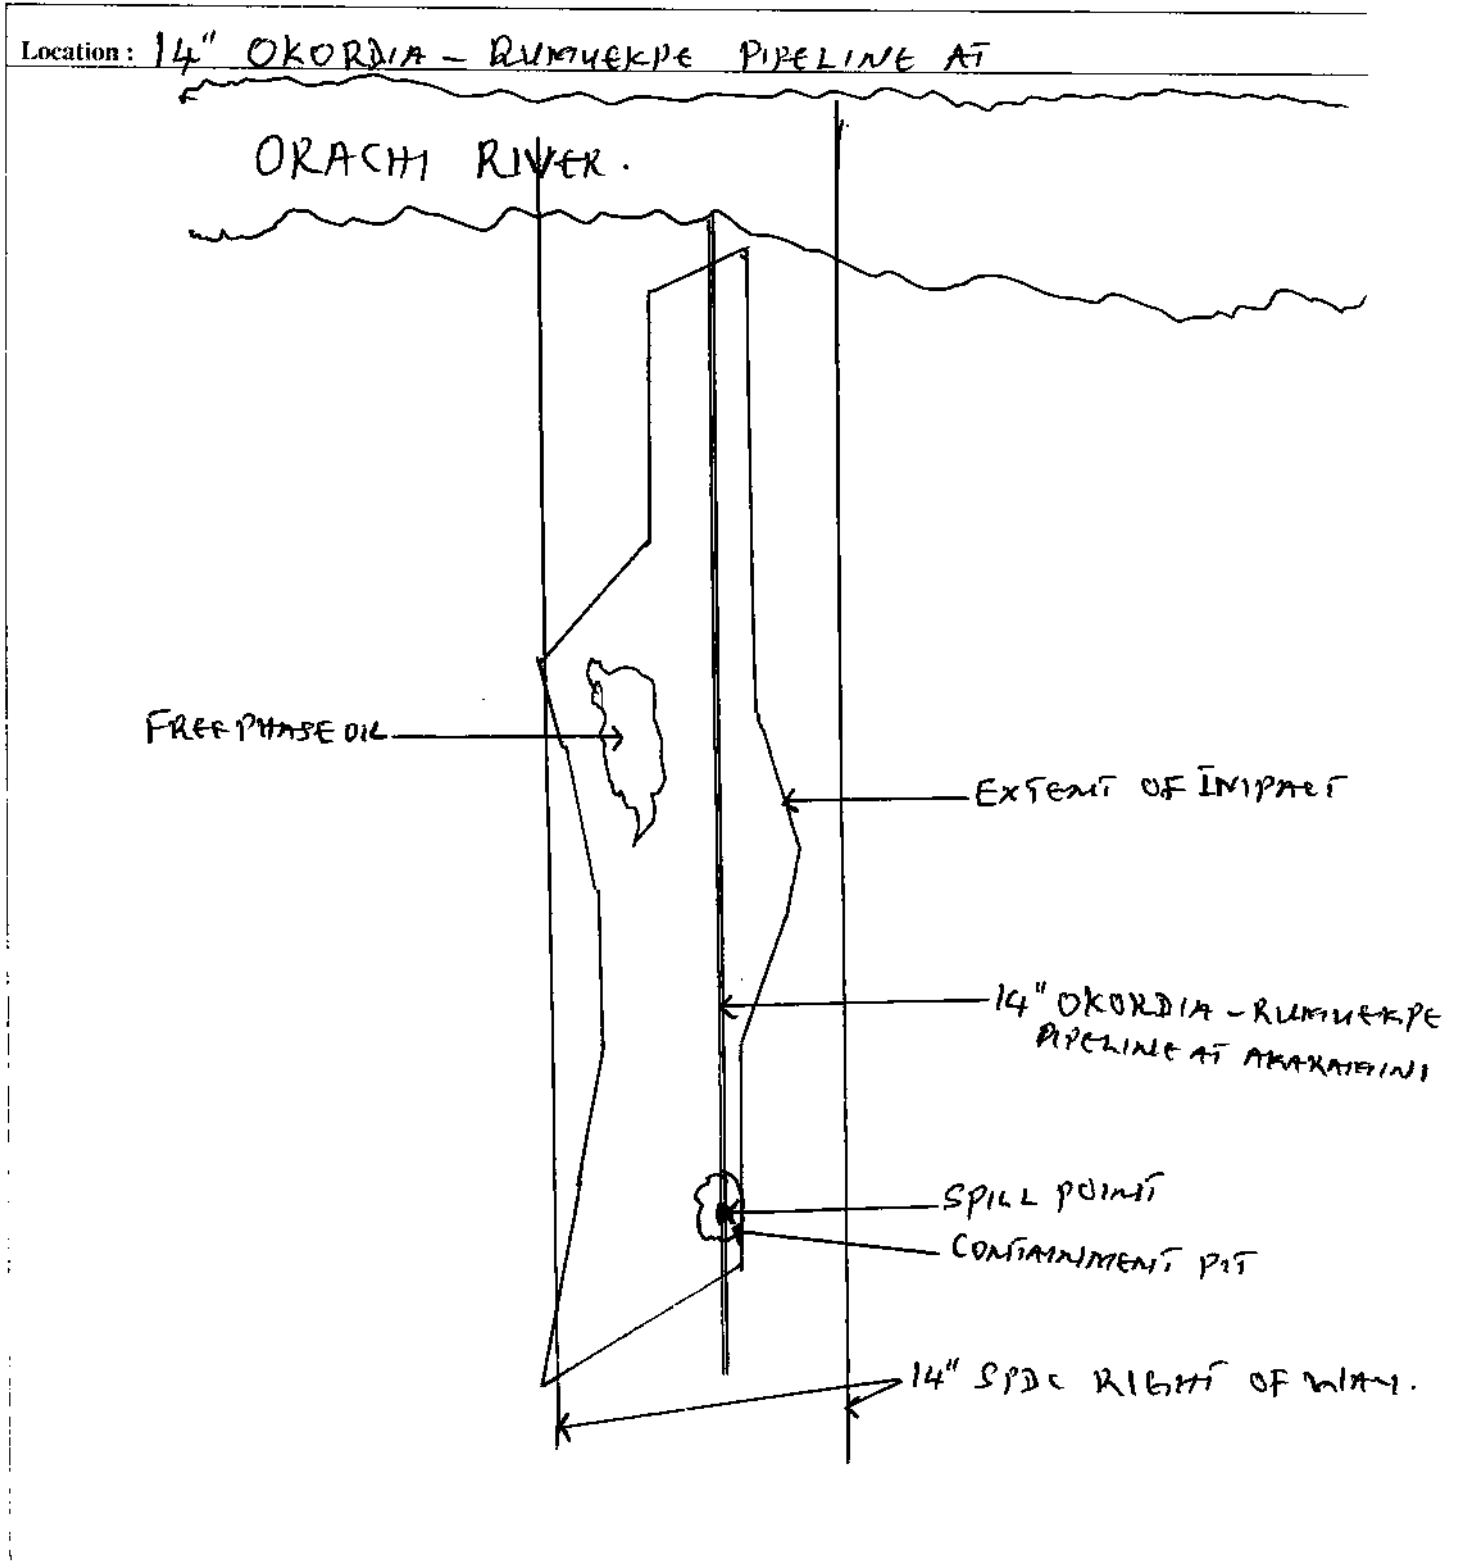 Location : 14" OKORDIA - RUMUEKPE PIPELINE AT
ORACHI RIVER.
FREE PHASE OIL
EXTENT OF IMPACT
14" OKORDIA - RUMUEKPE
PIPELINE AT
SPILL POINT
CONTAINMENT PIT
14" SPDC RIGHT OF WAY.